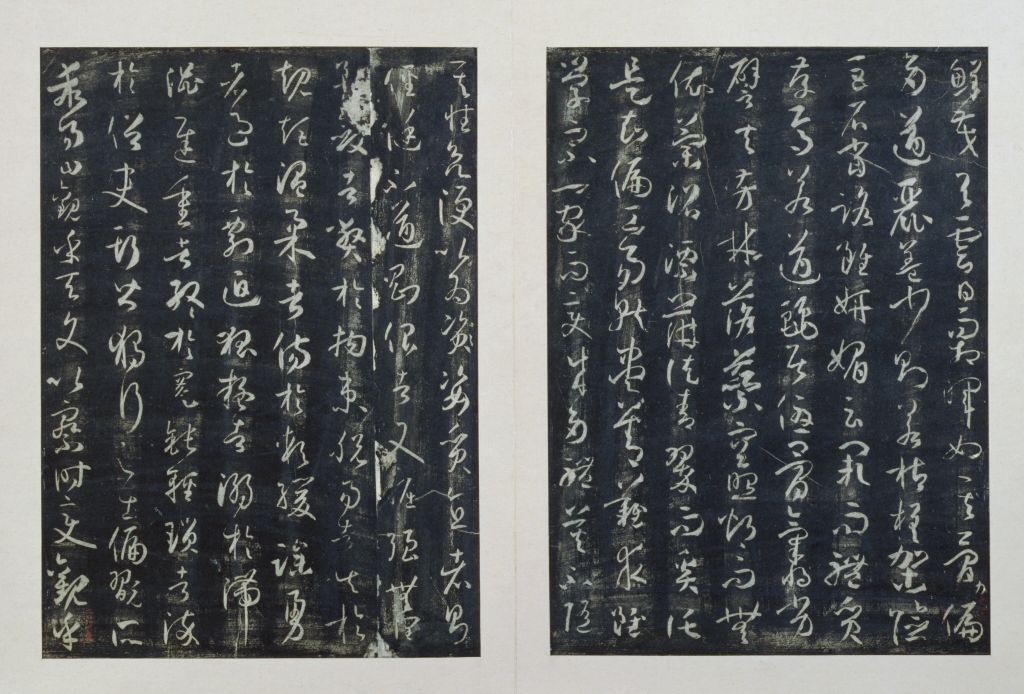 鮮茂與雲日而相暉如其骨力偏
多遒麗蓋少則若枯槎架險
巨石當路雖妍媚云闕而體質
存焉若遒麗居優骨氣將劣
譬夫芳林落蘂空照灼而無
依蘭沼漂蓱徒青翠而奚託
是知偏工易就盡善難求雖
學宗一家而變成多體莫不隨
其性欲便以為姿質直者則
徑侹不遒剛佷者又倔強無潤
矜斂者弊於拘束脫易者失於
規矩溫柔者傷於軟緩躁勇
者過於剽迫狐疑者溺於滯
澀遲重者終於蹇鈍輕瑣者染
於俗吏斯皆獨行之士偏翫所
乖易曰觀乎天文以察時變觀乎